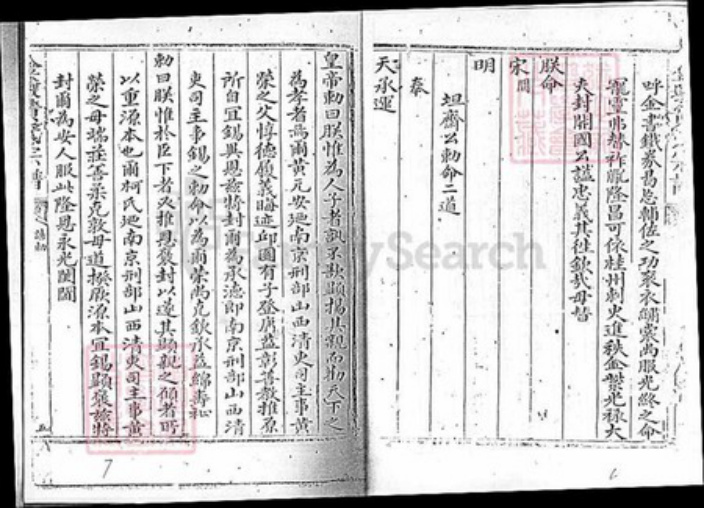 呼金書鐵券曷忘輔佐之功袞衣繡裳尚服光終之命
寵靈弗替祚胤隆昌可依桂州刺史進秩金紫光祿大
夫封開國公諡忠義其往欽哉毋替
朕命
宋
明
坦齋公勅命二道
奉
天承運
皇帝勅曰朕惟為人子者孰不欲顯揚其親而勸天下之
為孝者焉爾黃元安迺南京刑部山西清吏司主事黃
榮之父惇德履義晦迹邱園有子登庸益彰善教推原
所自宜錫異恩茲特封爾為承德郎南京刑部山西清
吏司主事錫之勅命以為爾榮尚克欽承益綿壽祉
勅曰朕惟於臣下者必推恩褒封以遂其顯親之願者所
以重源本也爾柯氏迺南京刑部山西清吏司主事黃
榮之母端莊善柔克敦母道撥厥源本宜錫顯褒茲特
封爾為安人服此隆恩永光閨閫
7
6
FamilySearch